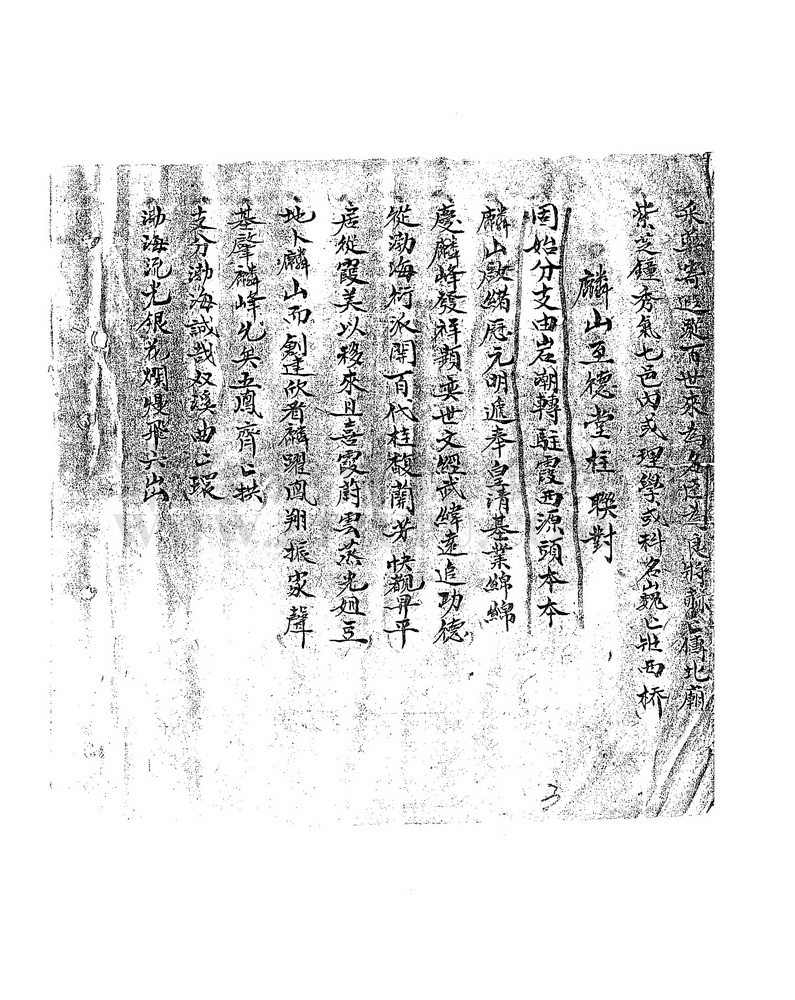 乘興寄遐蹤百世來為名臣為良將赫〻傳北廟
紫芝鐘秀氣七邑內或理學或科名巍〻壯西桥
麟山亙德堂柱聯對
固始分支由岩潮轉駐霞西源頭本本
麟山啟緒歷元明遞奉皇清基業綿綿
慶麟峰發祥類奕世文經武緯遠追功德
從渤海衍派開百代桂馥蘭芳快覩昇平
居從霞美以移來且喜霞蔚雲蒸光俎豆
地卜麟山而創建欣看麟躍鳳翔振家聲
基肇麟峰允矣五鳳齊〻拱
支分渤海誠哉奴溪曲〻環
渤海流光銀花爛熳飛六出
3